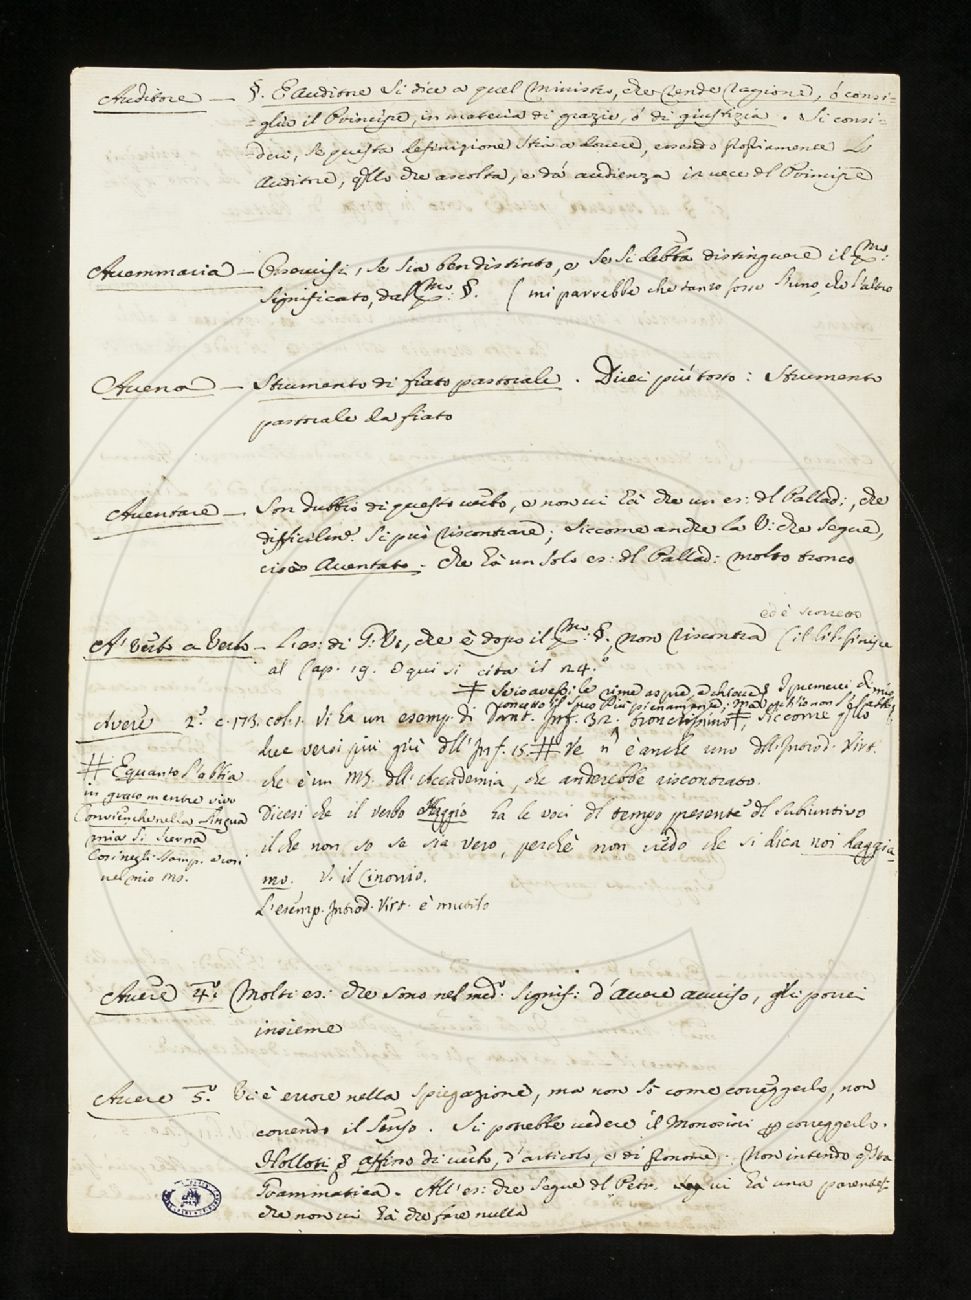 Auditore — §. E Auditore si dice a quel Ministro, che rende ragione, ó consi-
-glia il Principe, in materia di grazie, ó di giustizia. Si consi-
-deri, se questa definizione stia a dovere, essendo propriamente L'
Auditore, qllo che ascolta, e dá audienza in vece dl Principe
Avemmaria — si, se sia ben distinto, e se si debba distinguere il mo:
significato, dal mo: §. (mi parrebbe che tanto fosse l'uno, che l'altro
Avena — Strumento di fiato pastorale. Direi piú tosto: Strumento
pastorale da fiato
Aventare — Son dubbio di questo verbo, e non vi há che un es: dl Pallad:, che
difficilme. si può riscontrare; siccome anche la V: che segue,
cioè Aventato. che há un solo es: dl Pallad: molto tronco
ed è scorretto
A' verbo a verbo — L'es: di G. V:, che è dopo il mo: §., non riscontra (il lib. finisce
al Cap. 19. e qui si cita il 24.°
# S'io avessi le rime aspre, e chiocce § I' premerei di mio
concetto il suco più pienamente; ma perch'io non l'abbo,
Avere 2.° c. 173. col. 1. Vi ha un esemp. di Dant. Inf. 32. tronchissimo #, siccome qllo
due versi piu giú dll' Inf. 15. # Ve n' è anche uno dll' Introd. Virt.
# E quanto l'abbia
in grato mentre vivo
Convien che nella lingua
mia si scerna
Così negli stamp. e così
nel mio ms.
che è un MS. dll' Accademia, che anderebbe riscontrato.
Dicesi che il verbo Haggio ha le voci dl tempo presente dl subiuntivo
il che non so se sia vero, perchè non vedo che si dica noi haggia-
mo. V. il Cinonio.
L'esemp. Introd. Virt. è mutilo
Avere 4.° Molti es: che sono nel med.° signif: d'avere avviso, gli porrei
insieme
Avere 5.° Vi è errore nella spiegazione, ma non só come correggerlo, non
correndo il senso. Si potrebbe vedere il Monosini p correggerlo.
Holloti § affisso di verbo, d'articolo, e di pronome. Non intendo qsta
Grammatica. All' es: che segue dl Petr. vi há una parentesi
che non vi há che fare nulla